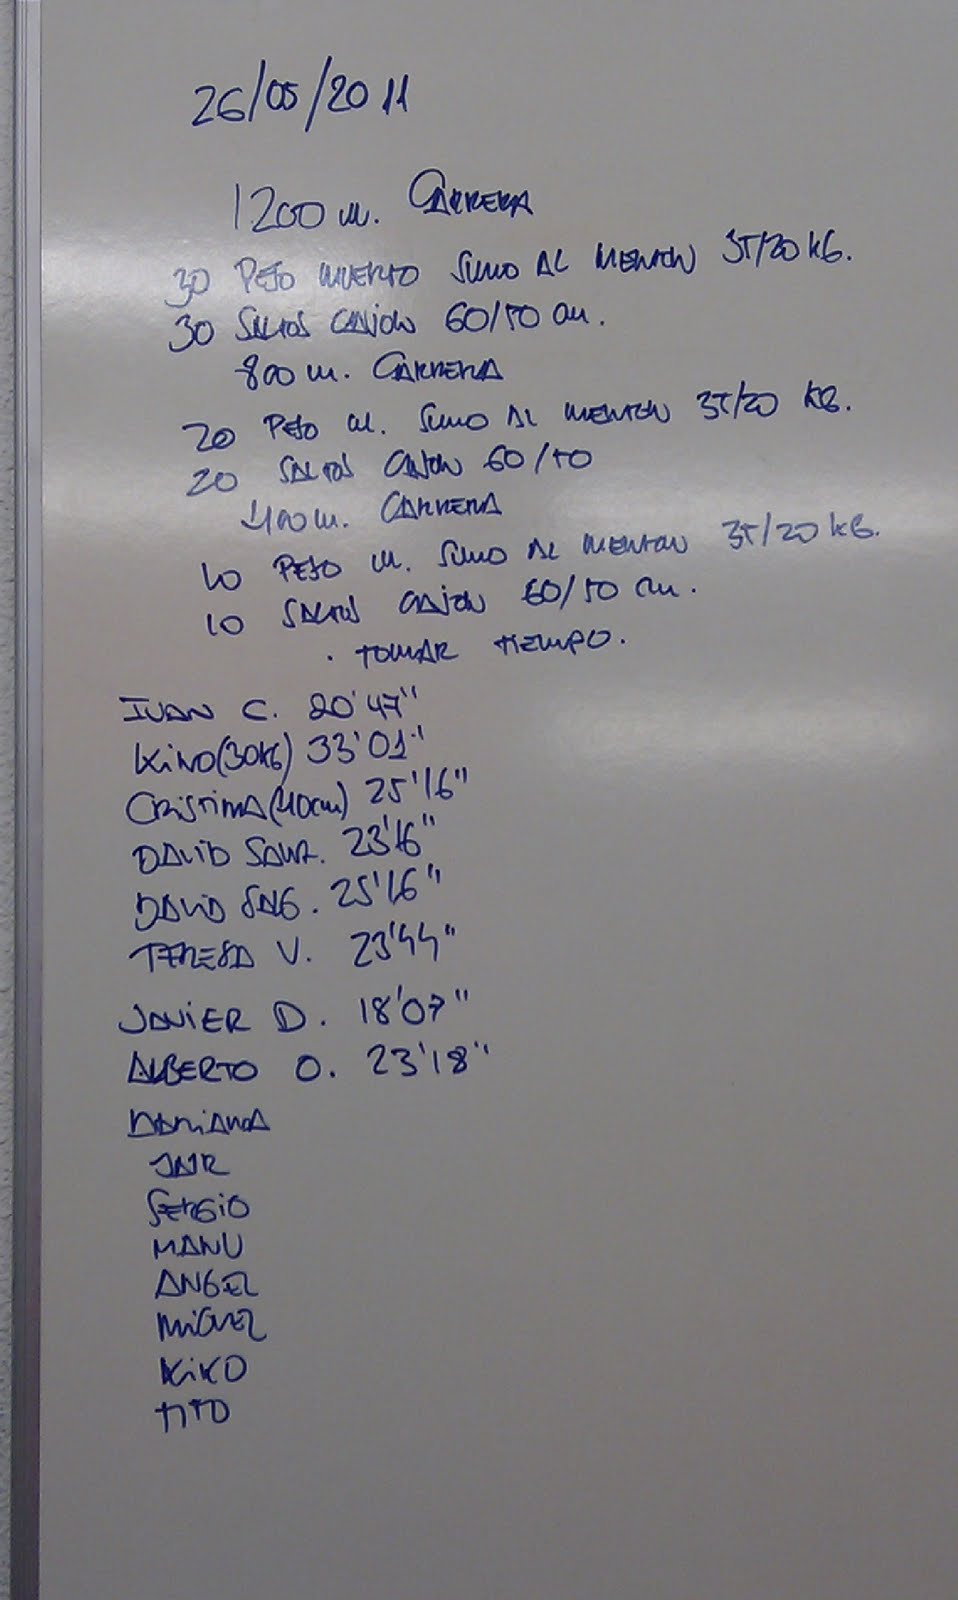 26/05/2011
1200 m. CARRERA
30 PESO MUERTO SUMO AL MENTON 35/20 KG.
30 SALTOS CAJON 60/50 cm.
800 m. CARRERA
20 PESO M. SUMO AL MENTON 35/20 KG.
20 SALTOS CAJON 60/50
400 m. CARRERA
10 PESO M. SUMO AL MENTON 35/20 KG.
10 SALTOS CAJON 60/50 cm.
. TOMAR TIEMPO.
IVAN C. 20'47"
KINO(30KG) 33'01"
CRISTINA(40cm) 25'16"
DAVID SANZ. 23'16"
DAVID SAG. 25'16"
TERESA V. 23'44"
JAVIER D. 18'07"
ALBERTO O. 23'18"
DAMIANA
JAIR
SERGIO
MANU
ANGEL
MIGUEL
KIKO
TITO